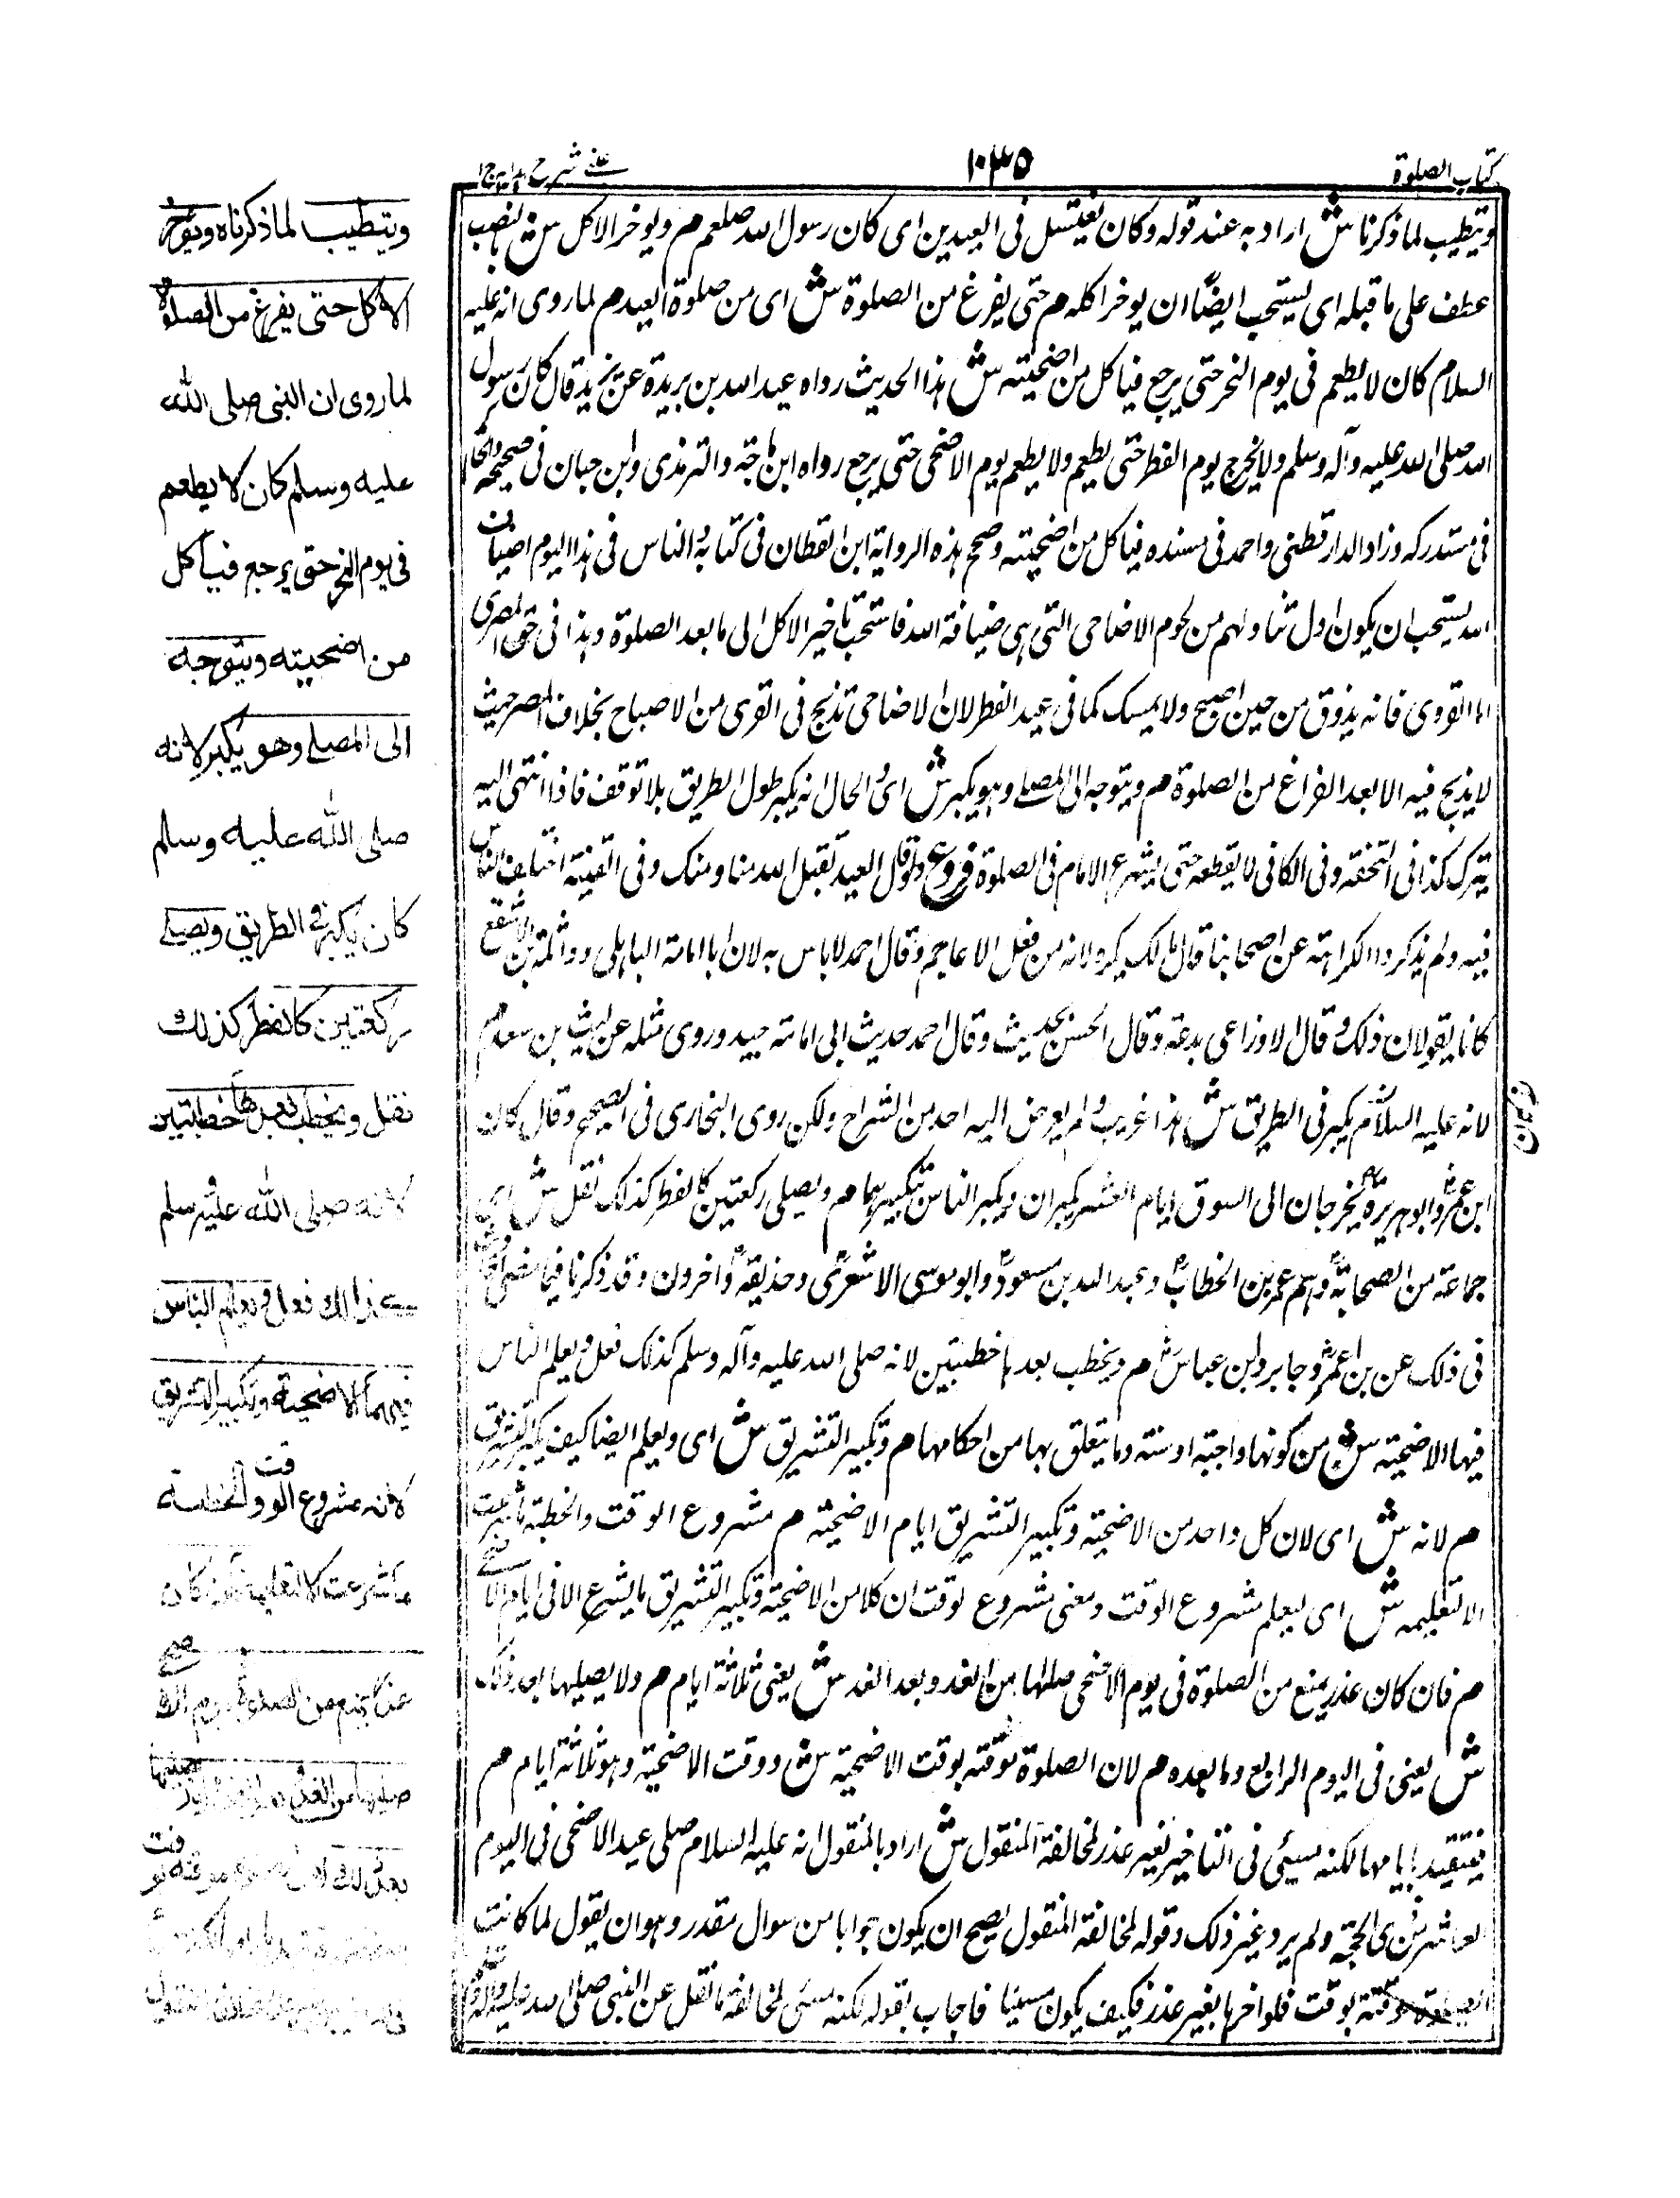 كتاب الصلوة
١٠٣٥
عينى شرح هدايه ج١
ويتطيب لما ذكرنا ش اراد به عند قوله وكان يغتسل فى العيدين اى كان رسول الله صلعم م ويوخر الاكل ش بالنصب
عطف على ما قبله اى يستحب ايضًا ان يوخر اكله م حتى يفرغ من الصلوة ش اى من صلوة العيد م لما روى انه عليه
السلام كان لا يطعم فى يوم النحر حتى يرجع فياكل من اضحيته ش هذا الحديث رواه عبد الله بن بريدة عن بريدة قال كان رسول
الله صلى الله عليه وآله وسلم ولا يخرج يوم الفطر حتى يطعم ولا يطعم يوم الاضحى حتى يرجع رواه ابن ماجة والترمذى وابن حبان فى صحيحه والحاكم
فى مستدركه وزاد الدارقطنى واحمد فى مسنده فياكل من اضحيته وصحح هذه الرواية ابن القطان فى كتابه والناس فى هذا اليوم اضياف
الله يستحب ان يكون اول تناولهم من لحوم الاضاحى التى هى ضيافة الله فاستحب تاخير الاكل الى ما بعد الصلوة وهذا فى حق المصرى
اما القروى فانه يذوق من حين اصبح ولا يمسك كما فى عيد الفطر لان الاضاحى تذبح فى القرى من الاصباح بخلاف المصر حيث
لا يذبح فيه الا بعد الفراغ من الصلوة م ويتوجه الى المصلے وهو يكبر ش اى والحال انه يكبر طول الطريق بلا توقف فاذا انتهى اليه
يترك كذا فى التحفة وفى الكافى لا يقطعه حتى يشرع الامام فى الصلوة فروع ولو قال العيد تقبل الله منا ومنك وفى القنية اختلف الناس
فيه ولم يذكروا الكراهة عن اصحابنا قال مالك يكره لانه من فعل الاعاجم وقال احمد لا باس به لان ابا امامة الباهلى وواثلة بن الاسقع
كانا يقولان ذلك وقال الاوزاعى بدعة وقال الحسن محدث وقال احمد حديث ابى امامة جيد وروى مثله عن ليث بن سعد م
لانه عليه السلام يكبر فى الطريق ش هذا غريب ولم يعرض اليه احد من الشراح ولكن روى البخارى فى الصحيح وقال كان
ابن عمر وابو هريرة يخرجان الى السوق ايام العشر يكبران ويكبر الناس بتكبيرهما م ويصلى ركعتين كالفطر كذلك نقل ش اى
جماعة من الصحابة وهم عمر بن الخطاب وعبد الله بن مسعود وابو موسى الاشعرى وحذيفة وآخرون وقد ذكرنا فيما مضى
فى ذلك عن بن عمر وجابر وابن عباس م ويخطب بعدها خطبتين لانه صلى الله عليه وآله وسلم كذلك فعل ويعلم الناس
فيها الاضحية ش من كونها واجبة او سنة وما يتعلق بها من احكامها م وتكبير التشريق ش اى ويعلم ايضا كيف تكبير التشريق
م لانه ش اى لان كل واحد من الاضحية وتكبير التشريق ايام الاضحية م مشروع الوقت والخطبة ما شرعت
الا لتعليمه ش اى ليعلم مشروع الوقت ومعنى مشروع لوقت ان كلا من الاضحية وتكبير التشريق ما يشرع الا فى ايام الاضحى
م فان كان عذر يمنع من الصلوة فى يوم الاضحى صلاها من الغد وبعد الغد ش يعنى ثلاثة ايام م ولا يصليها بعد ذلك
ش يعنى فى اليوم الرابع وما بعده م لان الصلوة موقتة بوقت الاضحية ش ووقت الاضحية وهو ثلاثة ايام م
فيتقيد بايامها لكنه مسيئى فى التاخير بغير عذر لمخالفة المنقول ش اراد بالمنقول انه عليه السلام صلى عيد الاضحى فى اليوم
العاشر من ذى الحجة ولم يرو غير ذلك وقوله لمخالفة المنقول يصح ان يكون جوابا من سوال مقدر وهو ان يقول لما كانت
الصلوة موقتة بوقت فلو اخرها بغير عذر فكيف يكون مسيئا فاجاب بقوله لكنه مسئى لمخالفة ما نقل عن النبى صلى الله عليه وآله
ويتطيب لما ذكرناه ويؤخر
الاكل حتى يفرغ من الصلوة
لما روى ان النبى صلى الله
عليه وسلم كان لا يطعم
فى يوم النحر حتى يرجع فيأكل
من اضحيته ويتوجه
الى المصلے وهو يكبر لانه
صلى الله عليه وسلم
كان يكبر فى الطريق ويصلے
ركعتين كالفطر كذلك
نقل ويخطب بعدها خطبتين
لانه صلى الله عليه وسلم
كذالك فعل ويعلم الناس
فيهما الاضحية وتكبير التشريق
لانه مشروع الوقت والخطبة
ما شرعت الا لتعليمه فان كان
عذر يمنع من الصلوة فى يوم الاضحى
صلاها من الغد وبعد الغد
بعد ذلك